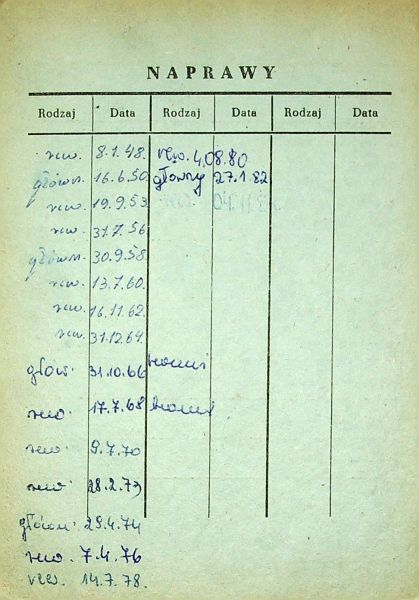 NAPRAWY
Rodzaj Data Rodzaj Data Rodzaj Data
rew. 8.1.48. rew. 4.08.80
główn. 16.6.50 główny 27.1.82
rew. 19.9.53
rew. 31.7.56
główn. 30.9.58.
rew. 13.7.60.
rew. 16.11.62.
rew. 31.12.64.
głow. 31.10.66
rew. 17.7.68
rew. 9.7.70
rew. 28.2.73
główn. 29.4.74
rew. 7.4.76
rew. 14.7.78.